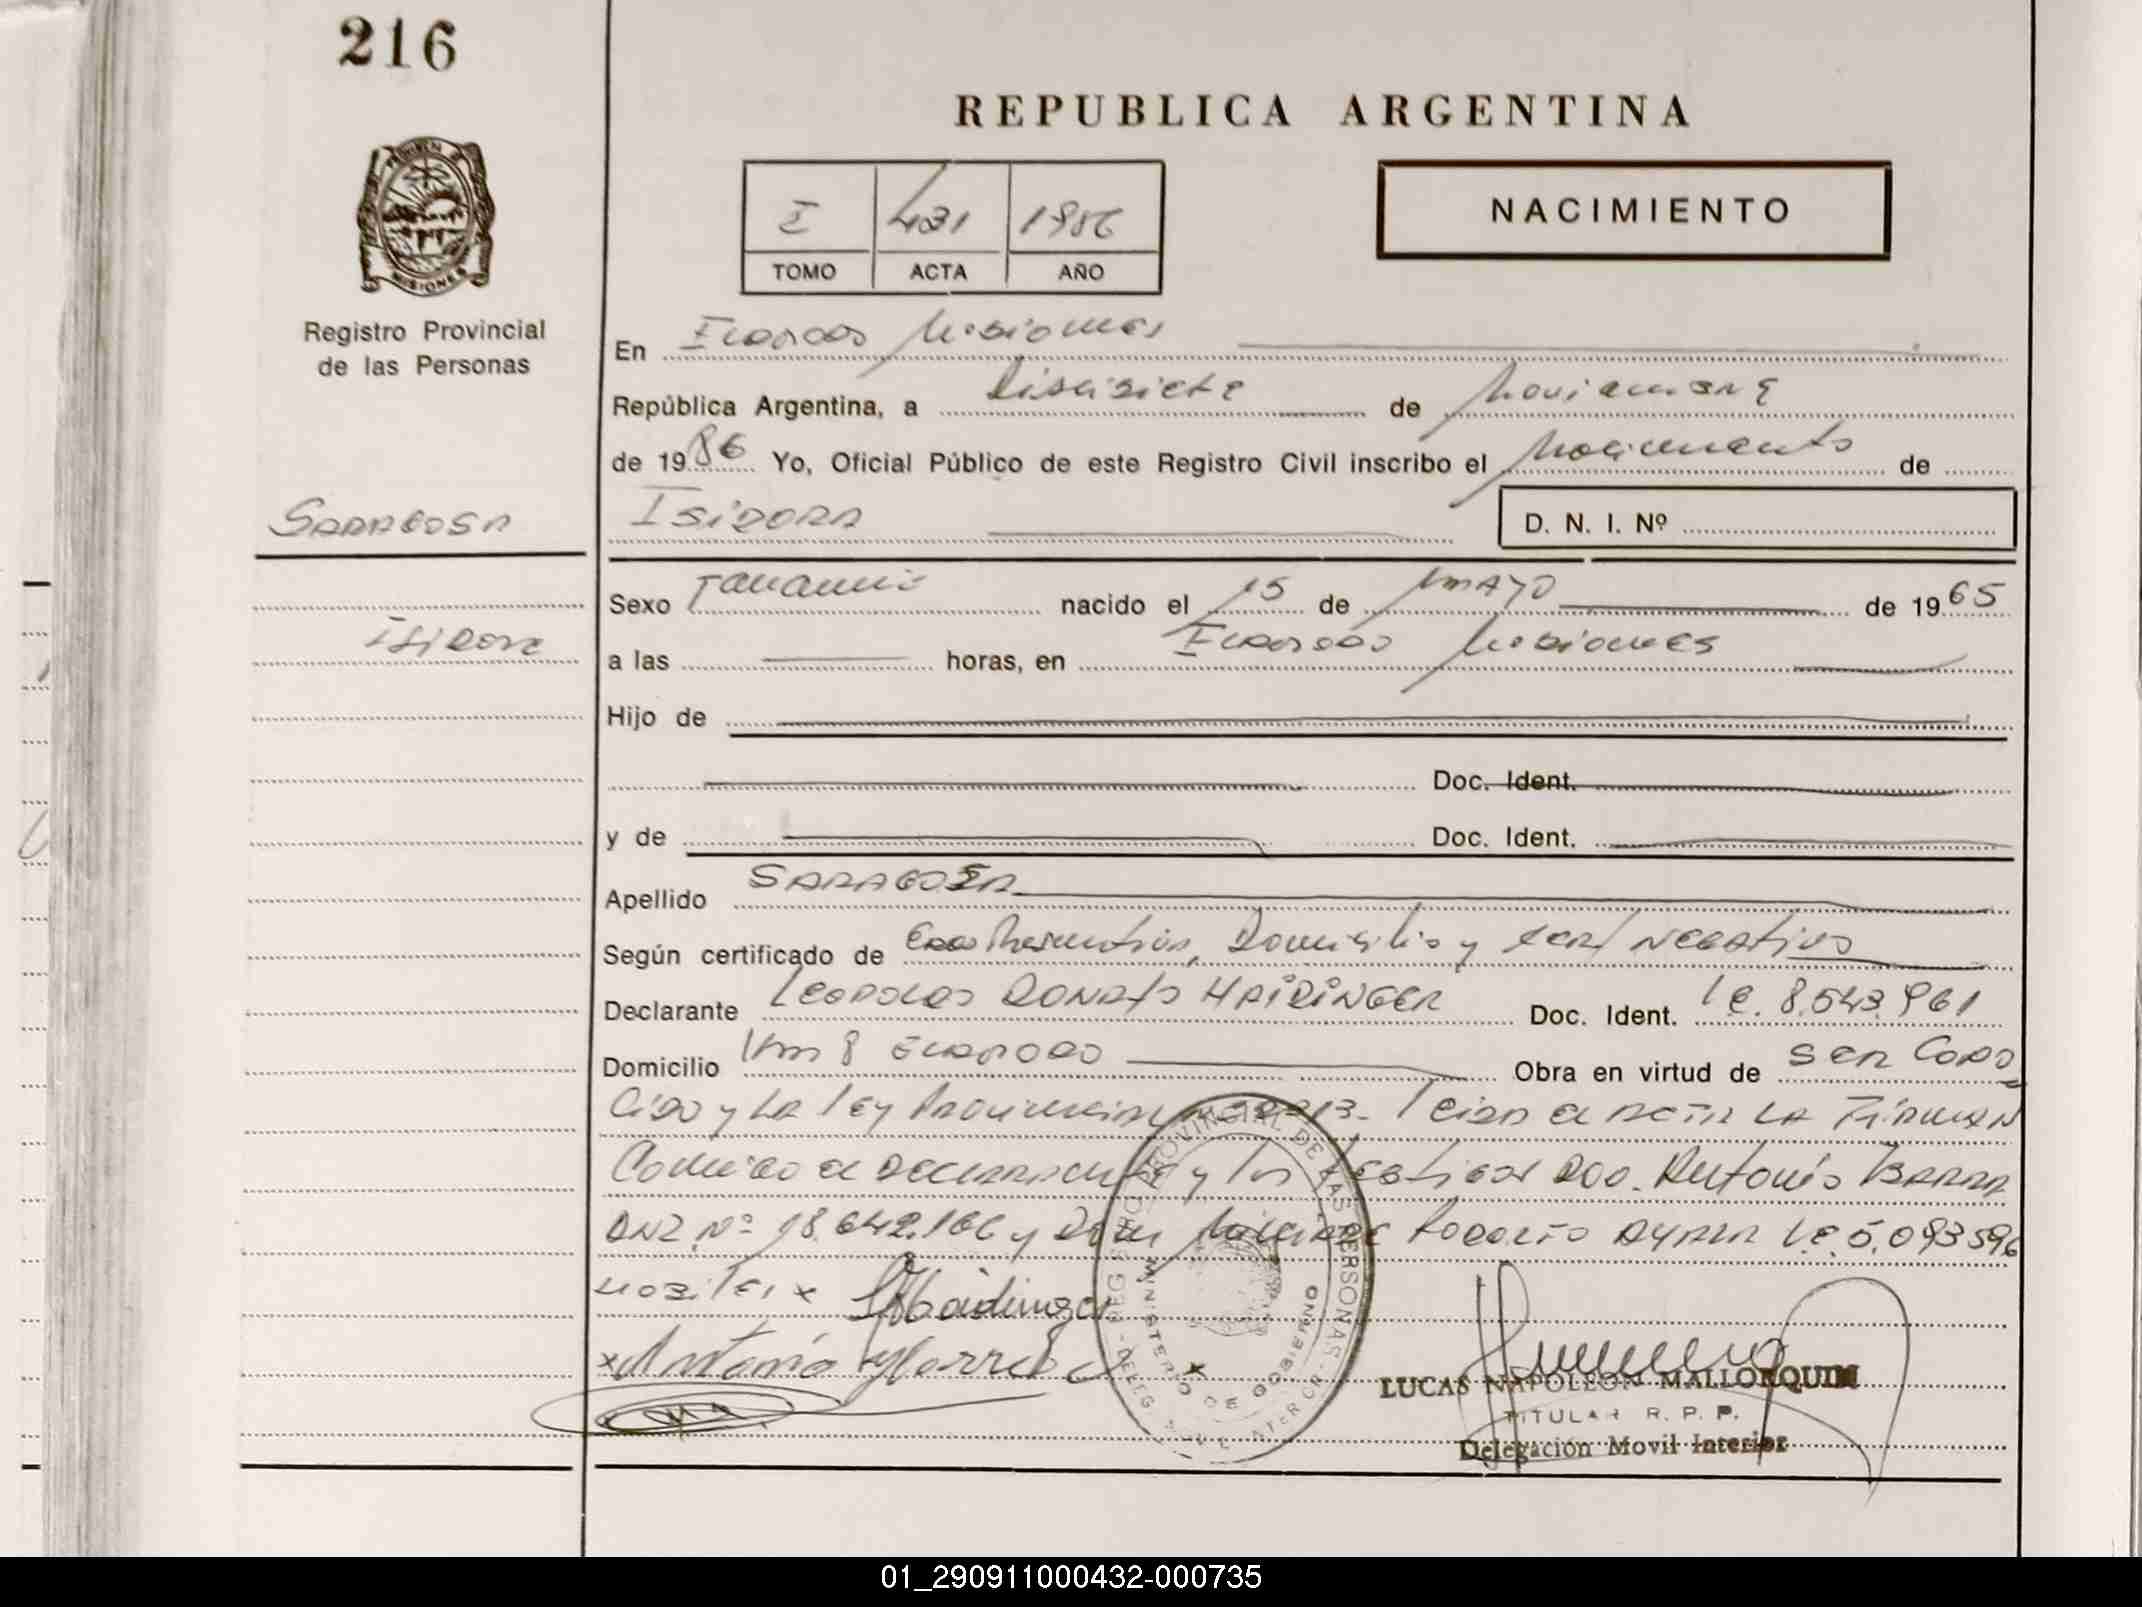 216
REPUBLICA ARGENTINA
NACIMIENTO
I 431 1986
TOMO ACTA AÑO
PROVINCIA DE MISIONES
Registro Provincial
de las Personas
En Eldorado Misiones
República Argentina, a Diecisiete de Noviembre
de 1986 Yo, Oficial Público de este Registro Civil inscribo el Nacimiento de
SARAGOSA
ISIDORA
D. N. I. Nº
Sexo Femenino nacido el 15 de MAYO de 1965
ISIDORA
a las horas, en Eldorado Misiones
Hijo de
Doc. Ident.
y de Doc. Ident.
Apellido SARAGOSA
Según certificado de Domicilio y cert NEGATIVO
Declarante Leopoldo DONATO HAIDINGER Doc. Ident. l.e. 8.543.961
Domicilio Km 8 ELDORADO Obra en virtud de SER CONO
CIDO y LA ley Provincial Leida el ACTA LA FIRMAN
Conmigo el DECLARANTE y los testigos Don. Antonio BARRA
DNI Nº 18.642.166 y Don RODOLFO AYALA l.e. 5.093.596
x Haidinger
x Antonio
REGISTRO PROVINCIAL DE LAS PERSONAS
MINISTERIO DE GOBIERNO
LUCAS NAPOLEON MALLORQUIN
TITULAR R. P. P.
Delegación Movil Interior
01_290911000432-000735